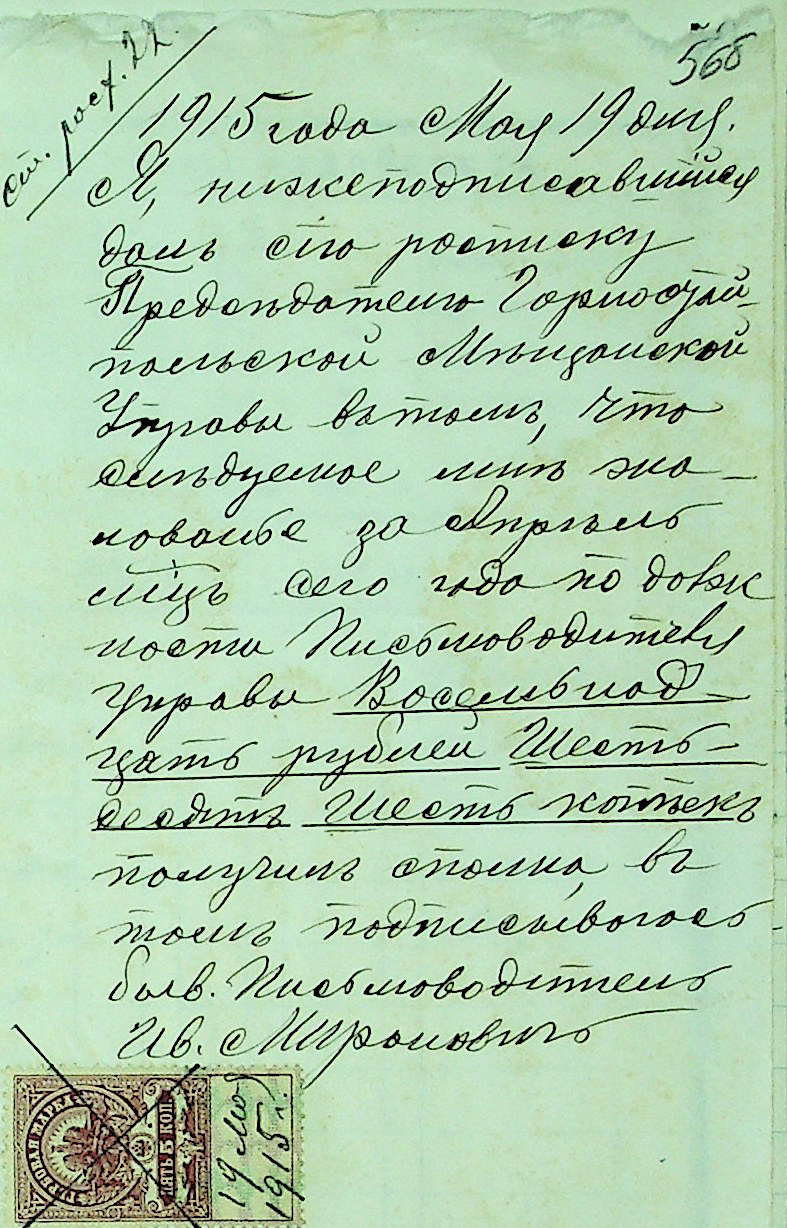 568
ст. расх. 22.
1915 года Мая 19 дня.
Я, нижеподписавшійся
далъ сію росписку
Предсѣдателю Горностай-
польской Мѣщанской
Управы въ томъ, что
слѣдуемое мнѣ жа-
лованье за Апрѣль
мцъ сего года по долж
ности Письмоводителя
Управы Восемьнад-
цать рублей Шесть-
десятъ Шесть копѣекъ
получилъ сполна, въ
томъ подписываюсь
быв. Письмоводитель
Ив. Мироновичъ
ГЕРБОВАЯ МАРКА
ПЯТЬ 5 КОП
19 Мая
1915 г.